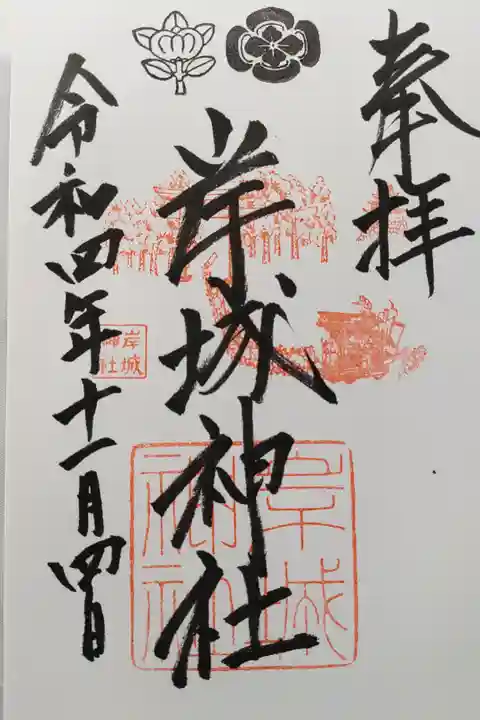 奉拝
岸城神社
岸城
神社
岸城
神社
令和四年十一月四日